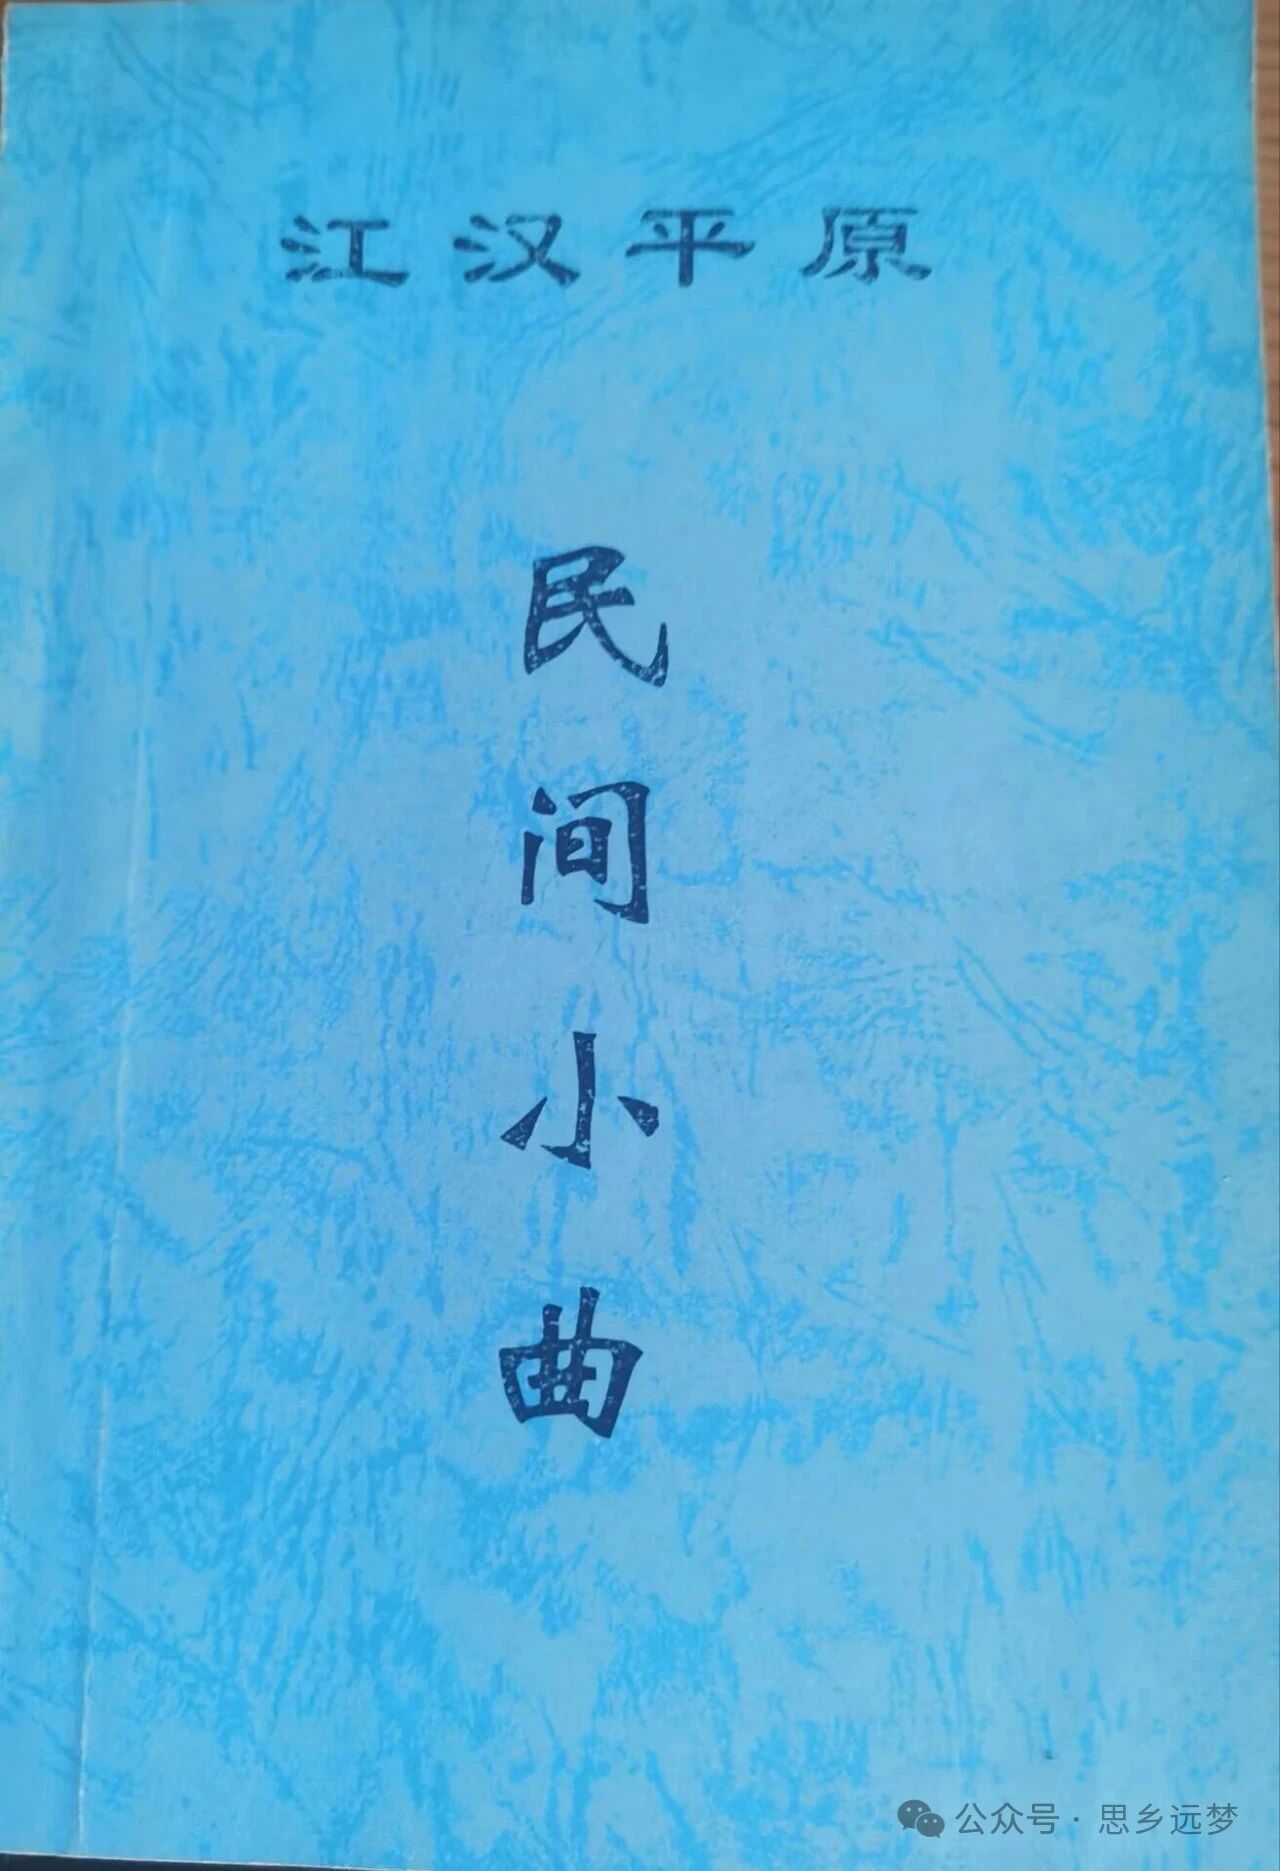 江汉平原
民间小曲
公众号·思乡远梦